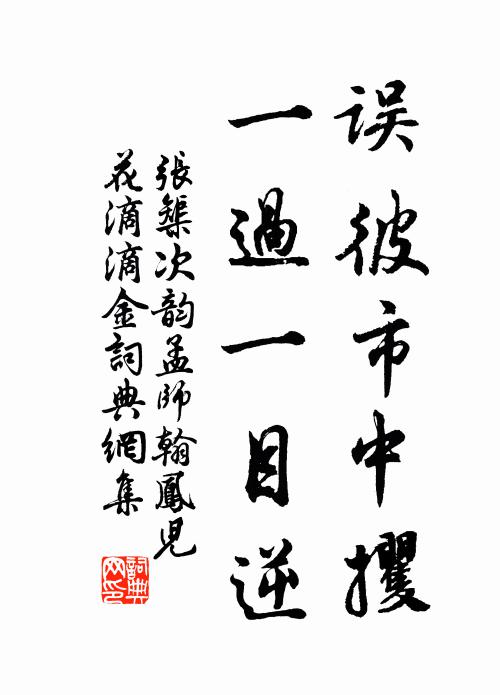 誤彼市中攫
一過一目逆
張榘次韵孟師翰鳳児
花滴滴金詞典網集
詞典网印